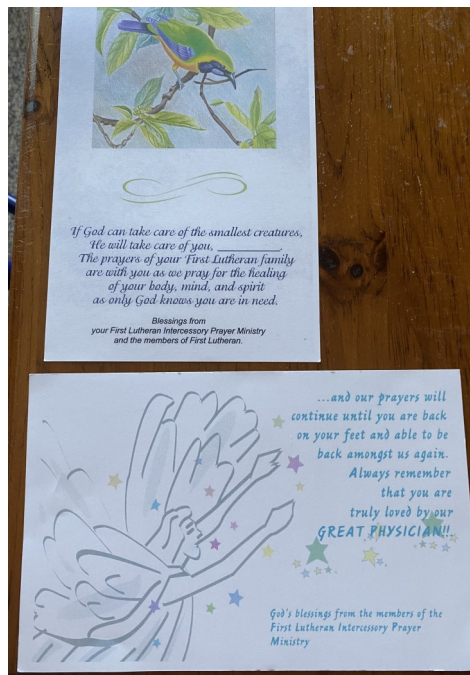 If God can take care of the smallest creatures,
He will take care of you, __________.
The prayers of your First Lutheran family
are with you as we pray for the healing
of your body, mind, and spirit
as only God knows you are in need.
Blessings from
your First Lutheran Intercessory Prayer Ministry
and the members of First Lutheran.
...and our prayers will
continue until you are back
on your feet and able to be
back amongst us again.
Always remember
that you are
truly loved by our
GREAT PHYSICIAN!!
God's blessings from the members of the
First Lutheran Intercessory Prayer
Ministry